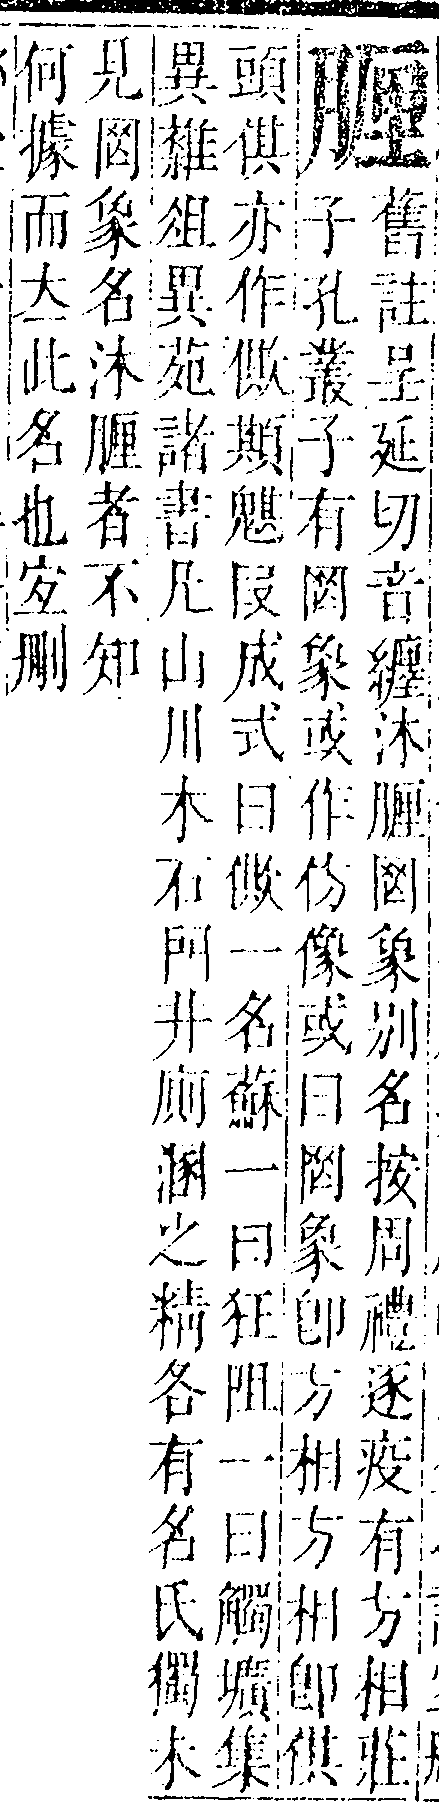 𦜱
舊註呈延切音纏沐𦜱罔象別名按周禮逐疫有方相莊
子孔叢子有罔象或作彷像或曰罔象卽方相方相卽倛
頭倛亦作僛䫏魌段成式曰僛一名蘇一曰狂阻一曰觸壙集
異雜俎異苑諸書凡山川木石門井廁溷之精各有名氏獨未
見罔象名沐𦜱者不知
何據而立此名也宜刪